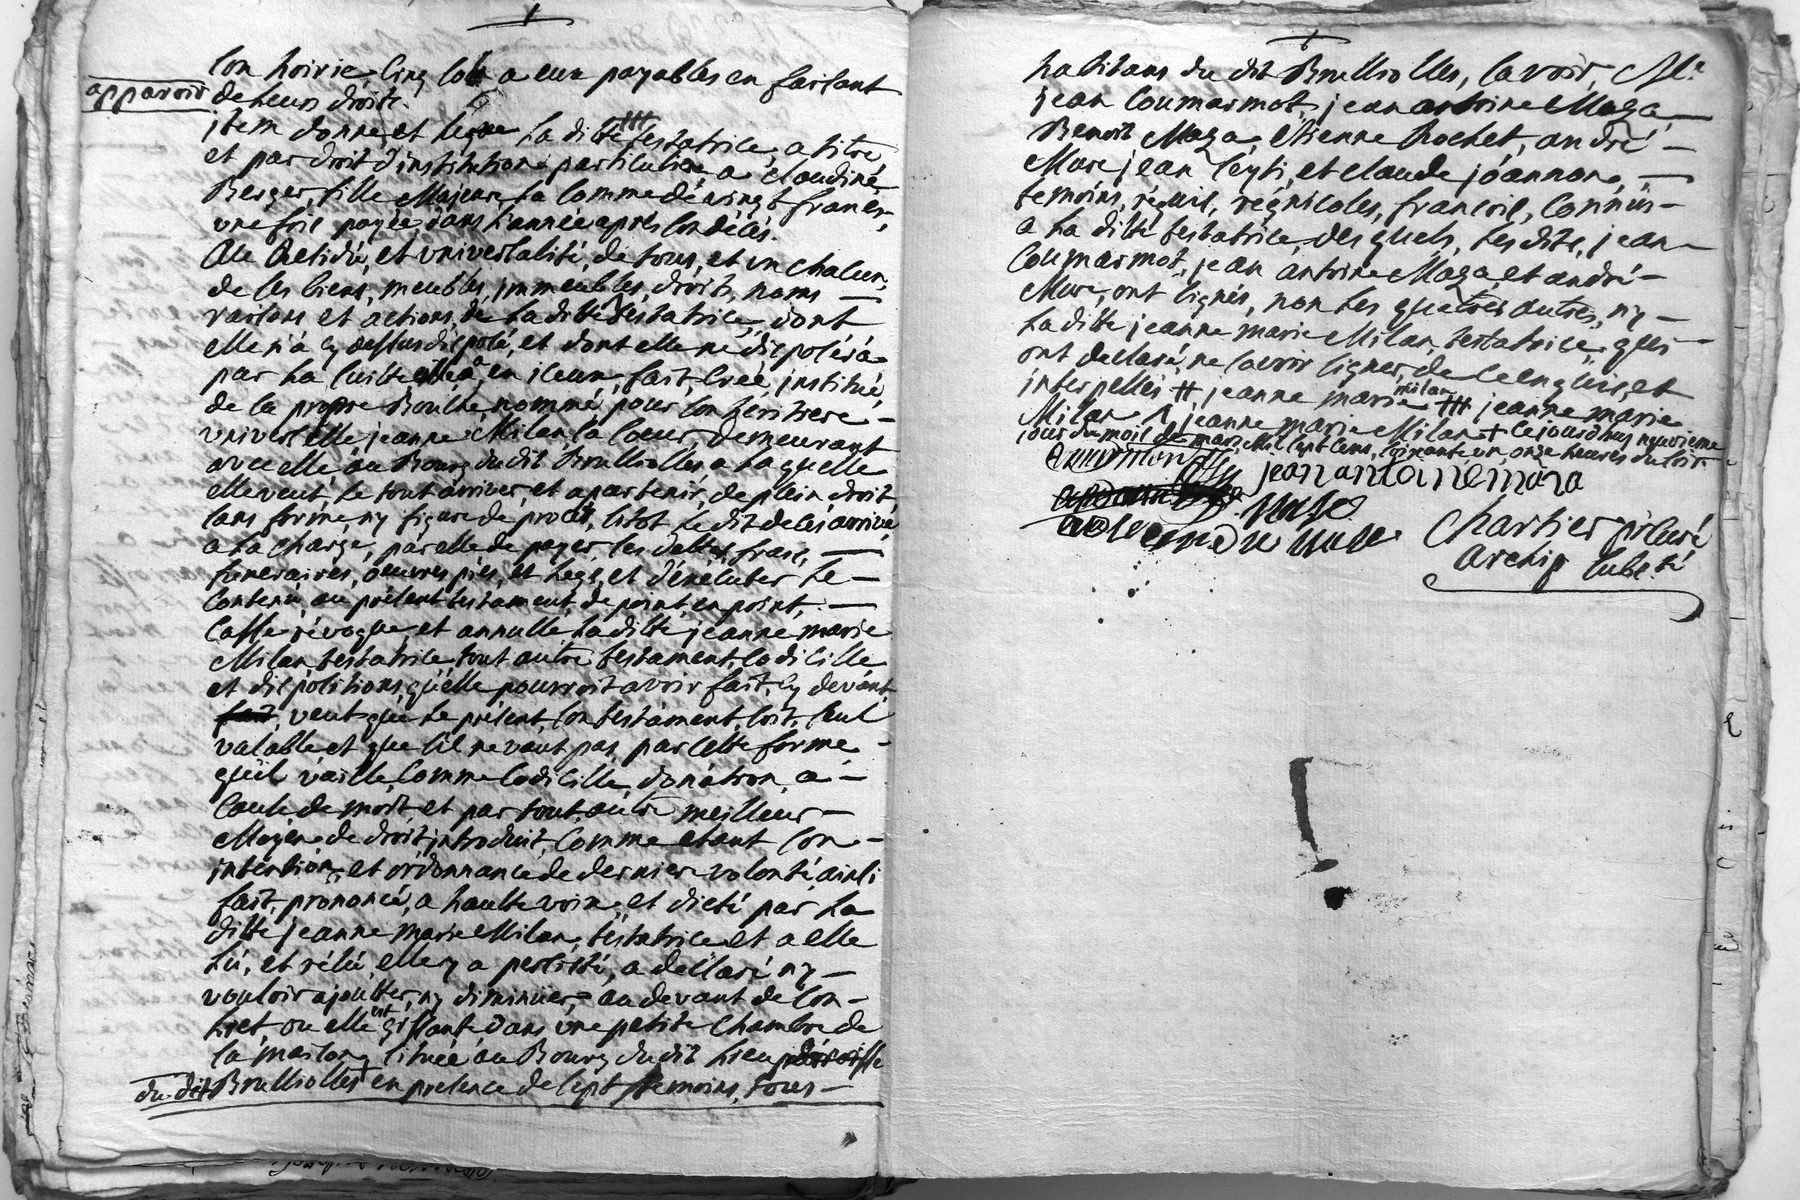 son hoirie, cinq sols a eux payables en faisant
apparoir de leurs droits.
jtem donne et legue la ditte ttt testatrice, a titre,
et par droit d'institution particuliere a claudine
Berger, fille Majeure, la somme de vingt francs,
une fois payée dans l'année apres son décés.
Au Residu, et universalité, de tous, et un chacun,
de ses biens, meubles, jmmeubles, droits, noms —
raisons et actions, de la ditte testatrice, dont
elle n'a cy dessus disposé, et dont elle ne disposéra
par la suitte, en iceux, fait, créé, institue,
de sa propre Bouche nommé, pour son héritiere —
universelle jeanne Milan sa soeur, demeurant
avec elle au Bourg du dit Brullioles a la quelle
elle veut, le tout arriver, et apartenir, de plein droit
sans forme, ny figure de procés, sitot le dit décés arrivé,
a la charge, par elle de payer, les dettes, frais, —
funeraires, oeuvres pies, et legs, et d'éxécuter le —
contenu au présent testament, de point, en point. —
Casse révoque, et annulle, la ditte jeanne marie
Milan testatrice, tout autre testament, codicille
et dispositions, quelle pourroit avoir fait, cy devant,
fait, veut que le présent, son testament, soit, seul
valable et que s'il ne vaut pas, par cette forme —
qu'il vaille, comme codicille, donation, a —
cause de mort, et par tout, autre meilleur —
Moyen de droit introduit, comme etant son —
intention, et ordonnance de derniere volonté ainsi
fait, prononcé, a haulte voix, et dicté par la
ditte jeanne marie Milan, testatrice et a elle
lu, et rélu, elle y a persisté, a déclaré ny —
vouloir ajoutter, ny diminüer, au devant de son —
liet, ou elle est gissante dans une petite chambre de
sa maison, située au Bourg du dit lieu paroisse
du dit Brullioles + en présence de sept temoins, tous —
habitans du dit Brullioles, savoir, Me.
jean Coumarmot, jean antoine Maza —
Benoit Maza, Etienne Rochet, andré —
Mure, jean, et claude joannon, —
temoins, réquis, régnicoles, francois, connüs —
a la ditte testatrice, des quels, les dits, jean —
Coumarmot, jean antoine Maza, et andré —
Mure, ont signés, non les quatres autres, ny —
la ditte jeanne marie Milan, testatrice, qui —
ont declaré, ne savoir signer, de ce enquis, et
interpellés # jeanne marie milan ttt jeanne marie
Milan jeanne marie Milan + cejourdhuy neuvieme
jour du mois de mars, Mil sept cens, soixante un, onze heures du soir.
Coumarmot jean antoine maza
mure
andre mure Chartier pr curé
archip. subst.